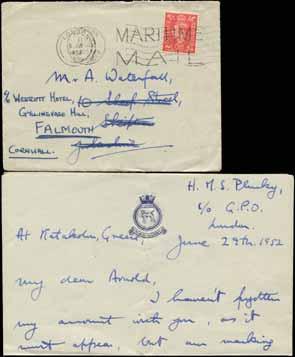 LONDON
1952
MARITIME
MAIL
Mr A. Waterfall,
c/o Westcott Hotel,
10 Sheep Street,
Gyllingvase Hill,
Skipton
FALMOUTH
Yorkshire
CORNWALL.
H. M. S. Plumleaf,
c/o G.P.O.
London.
At Katakolon, Greece
June 29th. 1952
My dear Arnold,
I haven't forgotten
my account with you, as it
must appear, but am making